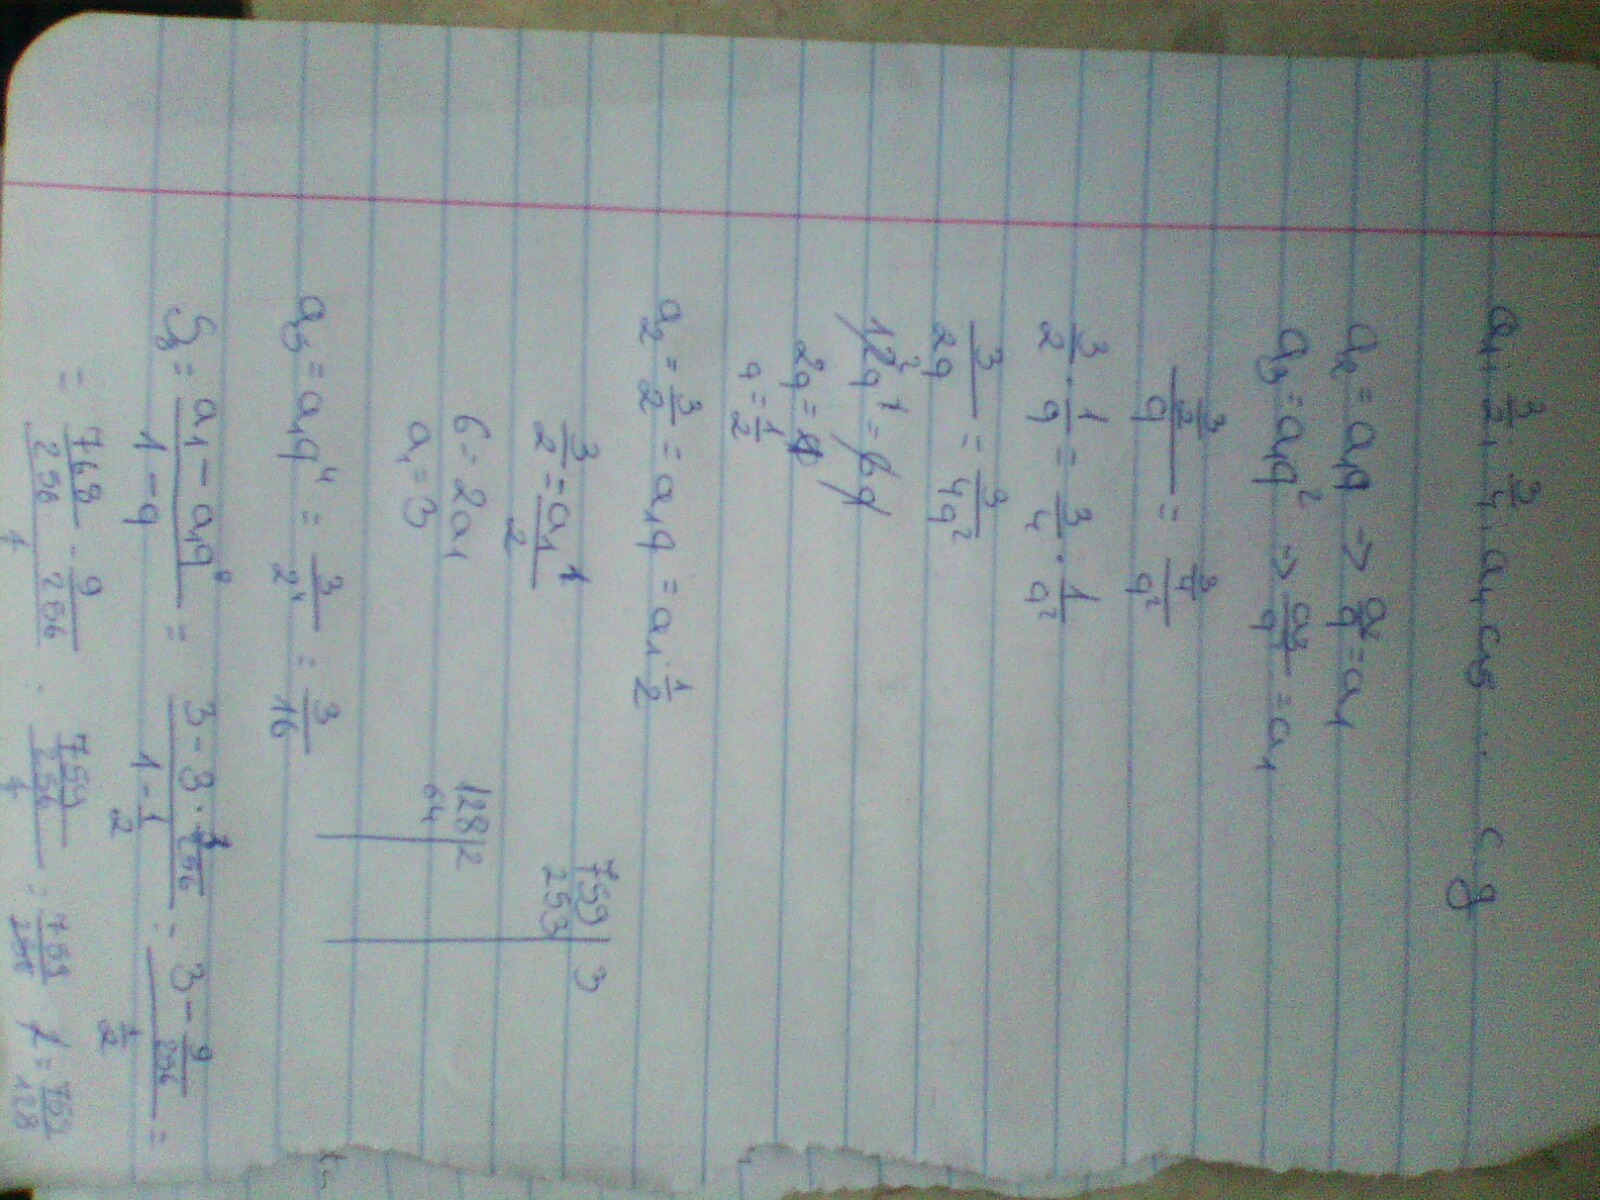 a₁, 3/2, 3/4, a₄, a₅ ... c. g
a₂ = a₁q → a₂/q = a₁
a₃ = a₁q² → a₃/q = a₁
(3/2)/q = (3/4)/q²
3/2 · 1/q = 3/4 · 1/q²
3/2q = 3/4q²
12q² = 6q
2q = 1
q = 1/2
a₂ = 3/2 = a₁q = a₁ · 1/2
3/2 = a₁/2
759 | 3
253
6 = 2a₁
a₁ = 3
128 | 2
64
a₅ = a₁q⁴ = 3/2⁴ = 3/16
S₈ = (a₁ - a₁q⁸)/(1 - q) = (3 - 3 · 3/256)/(1 - 1/2) = (3 - 9/256)/(1/2) =
= 768/256 - 9/256 = 759/256 = 759/256 · 2 = 759/128